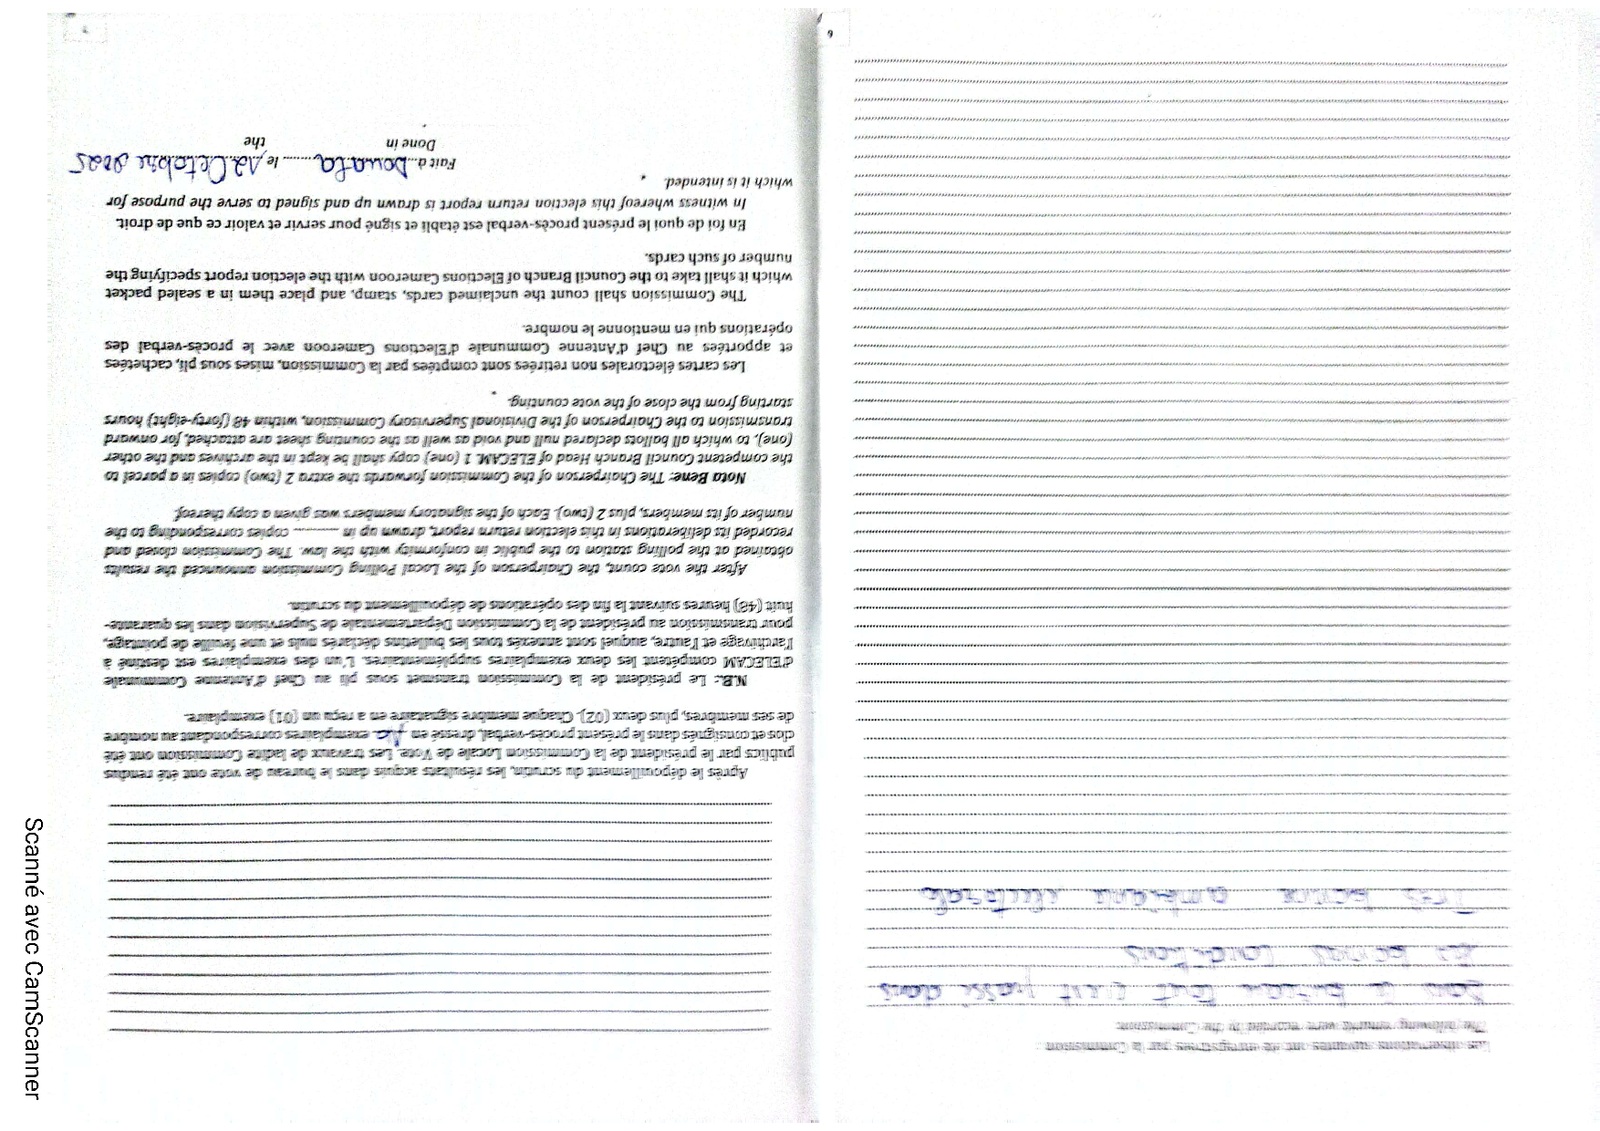 Les observations suivantes ont été enregistrées par la Commission :
The following remarks were recorded by the Commission:
Dans le bureau tout s'est passé dans
les bonnes conditions
Très bonne ambiance électorale
Après le dépouillement du scrutin, les résultats acquis dans le bureau de vote ont été rendus
publics par le président de la Commission Locale de Vote. Les travaux de ladite Commission ont été
clos et consignés dans le présent procès-verbal, dressé en exemplaires correspondant au nombre
de ses membres, plus deux (02). Chaque membre signataire en a reçu un (01) exemplaire.
N.B.: Le président de la Commission transmet sous pli au Chef d'Antenne Communale
d'ELECAM compétent les deux exemplaires supplémentaires. L'un des exemplaires est destiné à
l'archivage et l'autre, auquel sont annexés tous les bulletins déclarés nuls et une feuille de pointage,
pour transmission au président de la Commission Départementale de Supervision dans les quarante-
huit (48) heures suivant la fin des opérations de dépouillement du scrutin.
After the vote count, the Chairperson of the Local Polling Commission announced the results
obtained at the polling station to the public in conformity with the law. The Commission closed and
recorded its deliberations in this election return report, drawn up in ............ copies corresponding to the
number of its members, plus 2 (two). Each of the signatory members was given a copy thereof.
Nota Bene: The Chairperson of the Commission forwards the extra 2 (two) copies in a parcel to
the competent Council Branch Head of ELECAM. 1 (one) copy shall be kept in the archives and the other
(one), to which all ballots declared null and void as well as the counting sheet are attached, for onward
transmission to the Chairperson of the Divisional Supervisory Commission, within 48 (forty-eight) hours
starting from the close of the vote counting.
Les cartes électorales non retirées sont comptées par la Commission, mises sous pli, cachetées
et apportées au Chef d'Antenne Communale d'Elections Cameroon avec le procès-verbal des
opérations qui en mentionne le nombre.
The Commission shall count the unclaimed cards, stamp, and place them in a sealed packet
which it shall take to the Council Branch of Elections Cameroon with the election report specifying the
number of such cards.
En foi de quoi le présent procès-verbal est établi et signé pour servir et valoir ce que de droit.
In witness whereof this election return report is drawn up and signed to serve the purpose for
which it is intended.
Fait à Douala le 12 Octobre 2025
Done in the
Scanné avec CamScanner